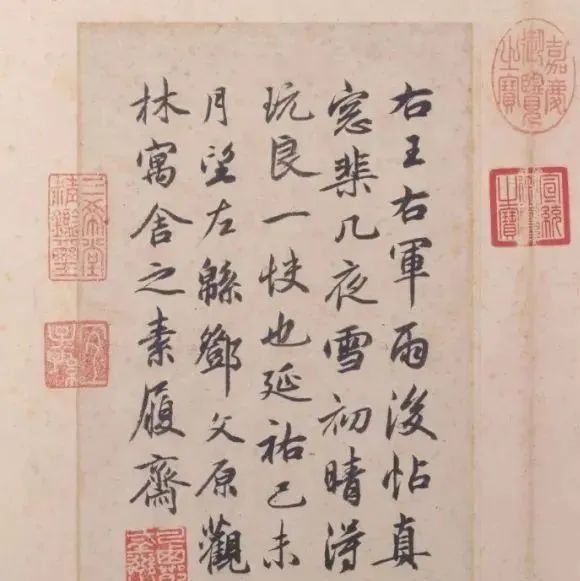 嘉慶御覽之寶
宣統御覽之寶
右王右軍雨後帖真
窓棐几夜雪初晴得
玩良一快也延祐己未
月望左緜鄧文原觀
林寓舍之素履齋
三希堂精鑑璽
宜子孫